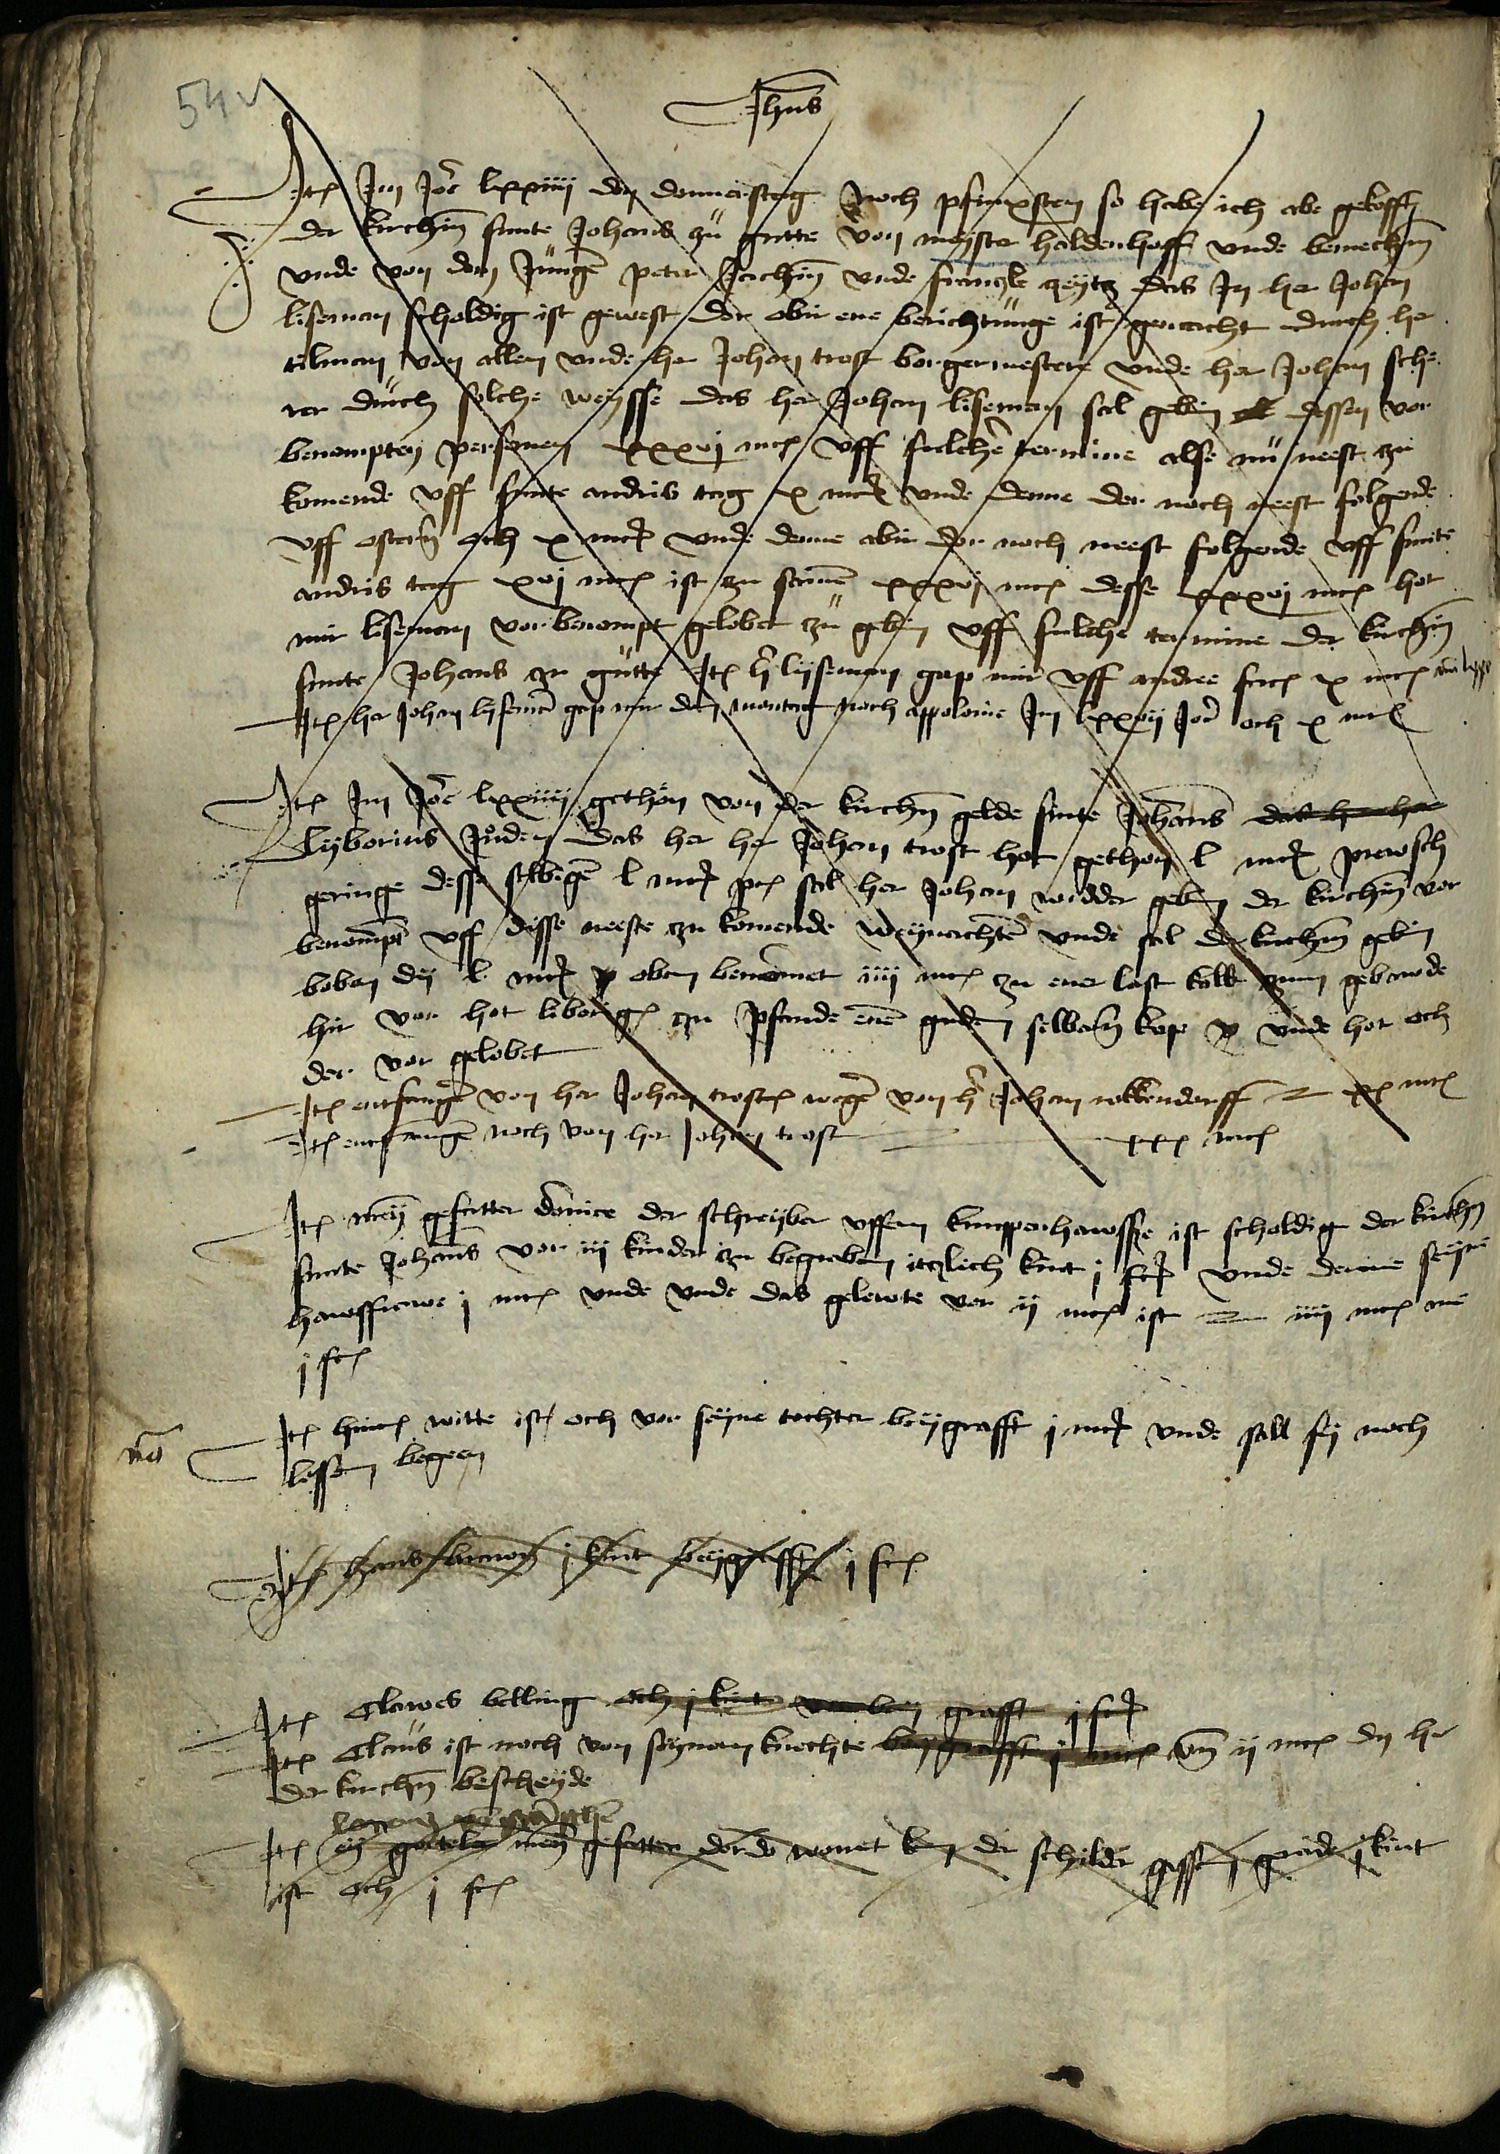 54v
Jhus
Jtem Jm Jore lxxiiii den donnerstag noch pfinxsten so habe ich abe gekofft
der kirchin sinte Johans zu gutte von meyster haldenhoff unde benechin
unde von dem Jungen peter Jachin unde franczke zeytz das Jn her Johan
liseman scholdig ist gewest dor obir ene berichtunge ist gemacht durch her
tilman von allen unde her Johan trost borgermestere unde her Johan sche
rer durch solche weysse das her Johan liseman sal geben dessen vor
benompten personen xxxvj mrc uff sulche termine alse nu neest zu
komende uff sinte andris tag x mrc unde denne dor noch neest folgende
uff ostern och x mrc unde denne abir dor noch neest folgende uff sinte
andris tag xvj mrc ist zu samen xxxvj mrc desse xxxvj mrc hot
mir liseman vorbenompt gelobet zu geben uff sulche termine der kirchin
sinte Johans zu gutte Jtem her lyseman gap mir uff andree x mrc
Jtem her Johan lyseman gap mir den montag noch appolonie Jm lxxvj Jor och x mrc
Jtem Jm Jore lxxiiii gethon von der kirchen gelde sinte Johans
lyborius Juden das her her Johan trost hot gethon l mrc prewsch
geringe desse selbigen l mrc pr sal her Johan wedder geben der kirchin vor
benompt uff disse neeste zu komende weynachten unde sal der kirchin geben
boben dy l mrc oben benomet iiii mrc zu ener last kalk zum gebawde
hir vor hot zu pfande enen guden selbern kop unde hot och
dor vor gelobet
Jtem entfangen von her Johan trosten wegen von her Johan rokkendorff xx mrc
Jtem entfangen noch von her Johan trost xxx mrc
Jtem meyn gefatter domnice der schreyber uffem kumppenhawsse ist scholdig der kirchen
sinte Johans vor iij kinder zu begraben itzlich kint j fr unde denne seyne
hawsfrawe j mrc unde unde das gelewte vor ij mrc ist iiij mrc
j fr
Jtem hinrc witte ist och vor seyne tochter beygrafft j mrc unde sall sy noch
lossen begeen
Jtem hans j kint beygrafft j fr
Jtem Clawes belling och j kint grafft j fr
Jtem Claus ist noch von seynem knechte beygrafft j mrc ij mrc dy her
der kirchen bescheyde
Jtem meyn gefatter wonet der schilder kint
ist och j fr